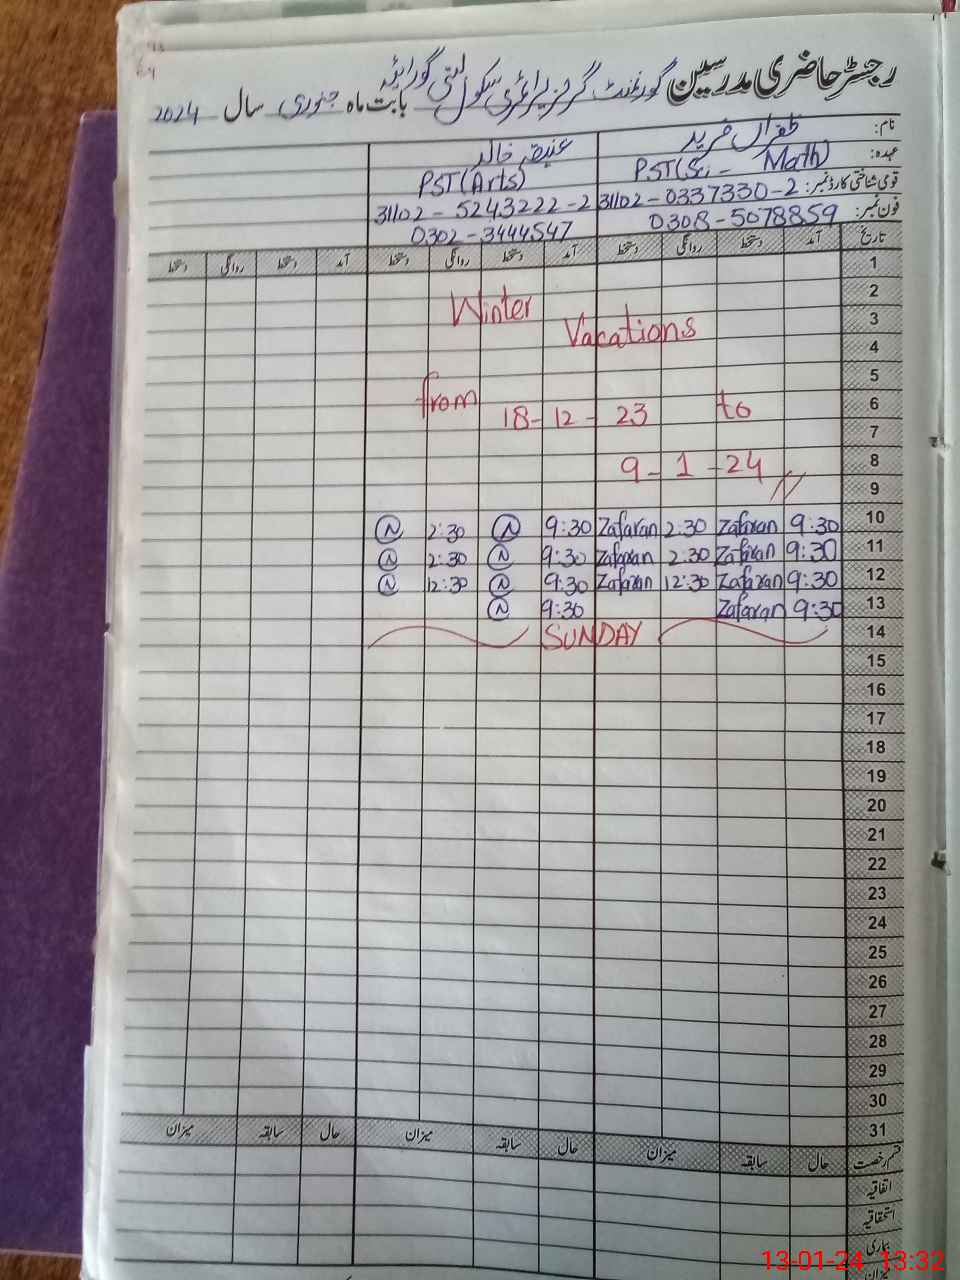 رجسٹر حاضری مدرسین گورنمنٹ گرلز پرائمری سکول بستی گورائیہ
بابت ماہ جنوری سال 2024
نام: ظفراں فرید عنیقہ خالد
عہدہ: PST(Sci - Math) PST(Arts)
قومی شناختی کارڈ نمبر: 31102-0337330-2 31102-5243222-2
فون نمبر: 0308-5078859 0302-3444547
تاریخ آمد دستخط روانگی دستخط آمد دستخط روانگی دستخط آمد دستخط روانگی دستخط
1
2 Winter
3 Vacations
4
5
6 from 18-12-23 to
7
8 9-1-24
9
10 9:30 Zafaran 2:30 Zafaran 9:30 N 2:30 N
11 9:30 Zafaran 2:30 Zafaran 9:30 N 2:30 N
12 9:30 Zafaran 12:30 Zafaran 9:30 N 12:30 N
13 9:30 Zafaran 9:30 N
14 SUNDAY
15
16
17
18
19
20
21
22
23
24
25
26
27
28
29
30
31
قسم رخصت حال سابقہ میزان حال سابقہ میزان حال سابقہ میزان
اتفاقیہ
استحقاقیہ
بیماری
میزان
13-01-24 13:32